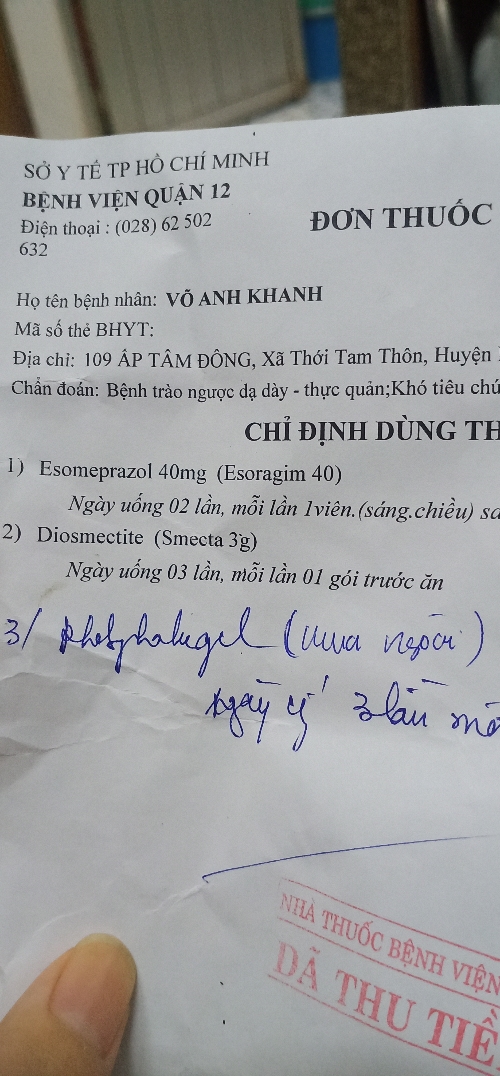 SỞ Y TẾ TP HỒ CHÍ MINH
BỆNH VIỆN QUẬN 12
Điện thoại : (028) 62 502
632
ĐƠN THUỐC
Họ tên bệnh nhân: VÕ ANH KHANH
Mã số thẻ BHYT:
Địa chỉ: 109 ẤP TÂM ĐÔNG, Xã Thới Tam Thôn, Huyện
Chẩn đoán: Bệnh trào ngược dạ dày - thực quản;Khó tiêu chứ
CHỈ ĐỊNH DÙNG TH
1) Esomeprazol 40mg (Esoragim 40)
Ngày uống 02 lần, mỗi lần 1viên.(sáng.chiều) sa
2) Diosmectite (Smecta 3g)
Ngày uống 03 lần, mỗi lần 01 gói trước ăn
3/ phosphalugel (mua ngoài)
ngày 3 lần
NHÀ THUỐC BỆNH VIỆN
ĐÃ THU TIỀ